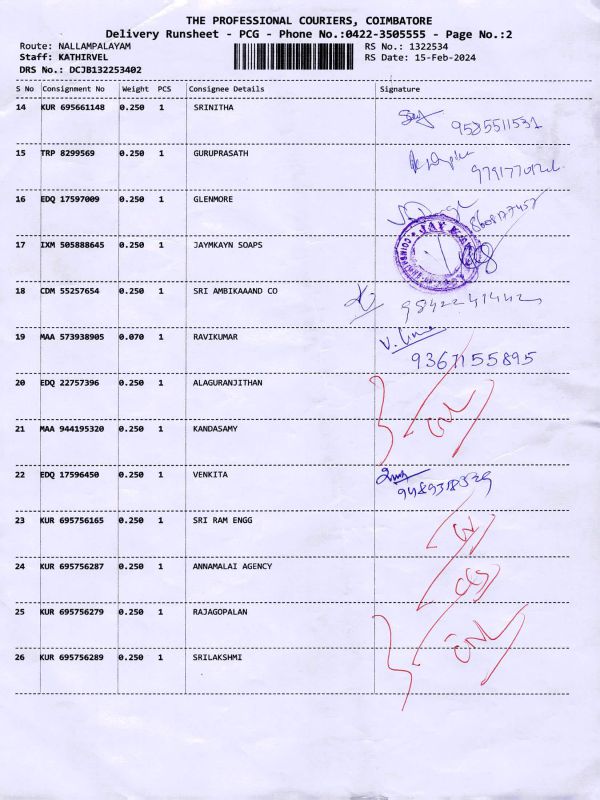 THE PROFESSIONAL COURIERS, COIMBATORE
Delivery Runsheet - PCG - Phone No.:0422-3505555 - Page No.:2
Route: NALLAMPALAYAM RS No.: 1322534
Staff: KATHIRVEL RS Date: 15-Feb-2024
DRS No.: DCJB132253402
S No Consignment No Weight PCS Consignee Details Signature
14 KUR 695661148 0.250 1 SRINITHA
9585511531
15 TRP 8299569 0.250 1 GURUPRASATH
16 EDQ 17597009 0.250 1 GLENMORE
17 IXM 505888645 0.250 1 JAYMKAYN SOAPS
18 CDM 55257654 0.250 1 SRI AMBIKAAAND CO
19 MAA 573938905 0.070 1 RAVIKUMAR
9367155895
20 EDQ 22757396 0.250 1 ALAGURANJITHAN
21 MAA 944195320 0.250 1 KANDASAMY
22 EDQ 17596450 0.250 1 VENKITA
23 KUR 695756165 0.250 1 SRI RAM ENGG
24 KUR 695756287 0.250 1 ANNAMALAI AGENCY
25 KUR 695756279 0.250 1 RAJAGOPALAN
26 KUR 695756289 0.250 1 SRILAKSHMI